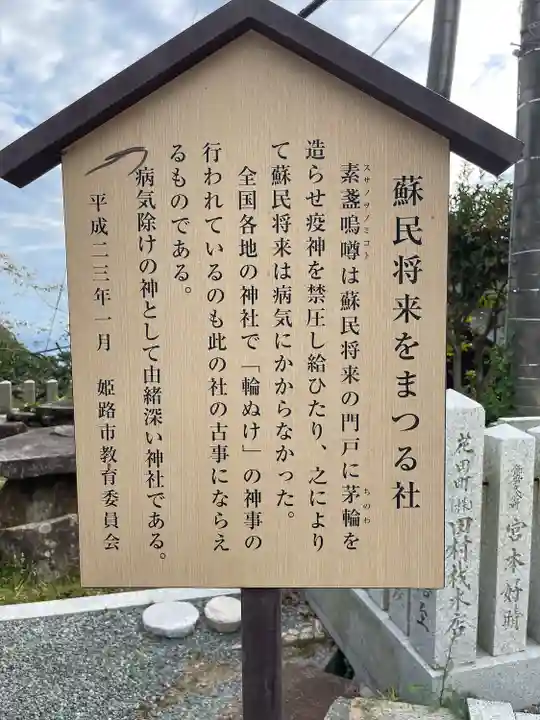 蘇民将来をまつる社
素盞嗚噂は蘇民将来の門戸に茅輪を
スサノヲノミコト
ちのわ
造らせ疫神を禁圧し給ひたり、之により
て蘇民将来は病気にかからなかった。
全国各地の神社で「輪ぬけ」の神事の
行われているのも此の社の古事にならえ
るものである。
病気除けの神として由緒深い神社である。
平成二三年一月 姫路市教育委員会
花田町㈱田村伐木店
宮本好時